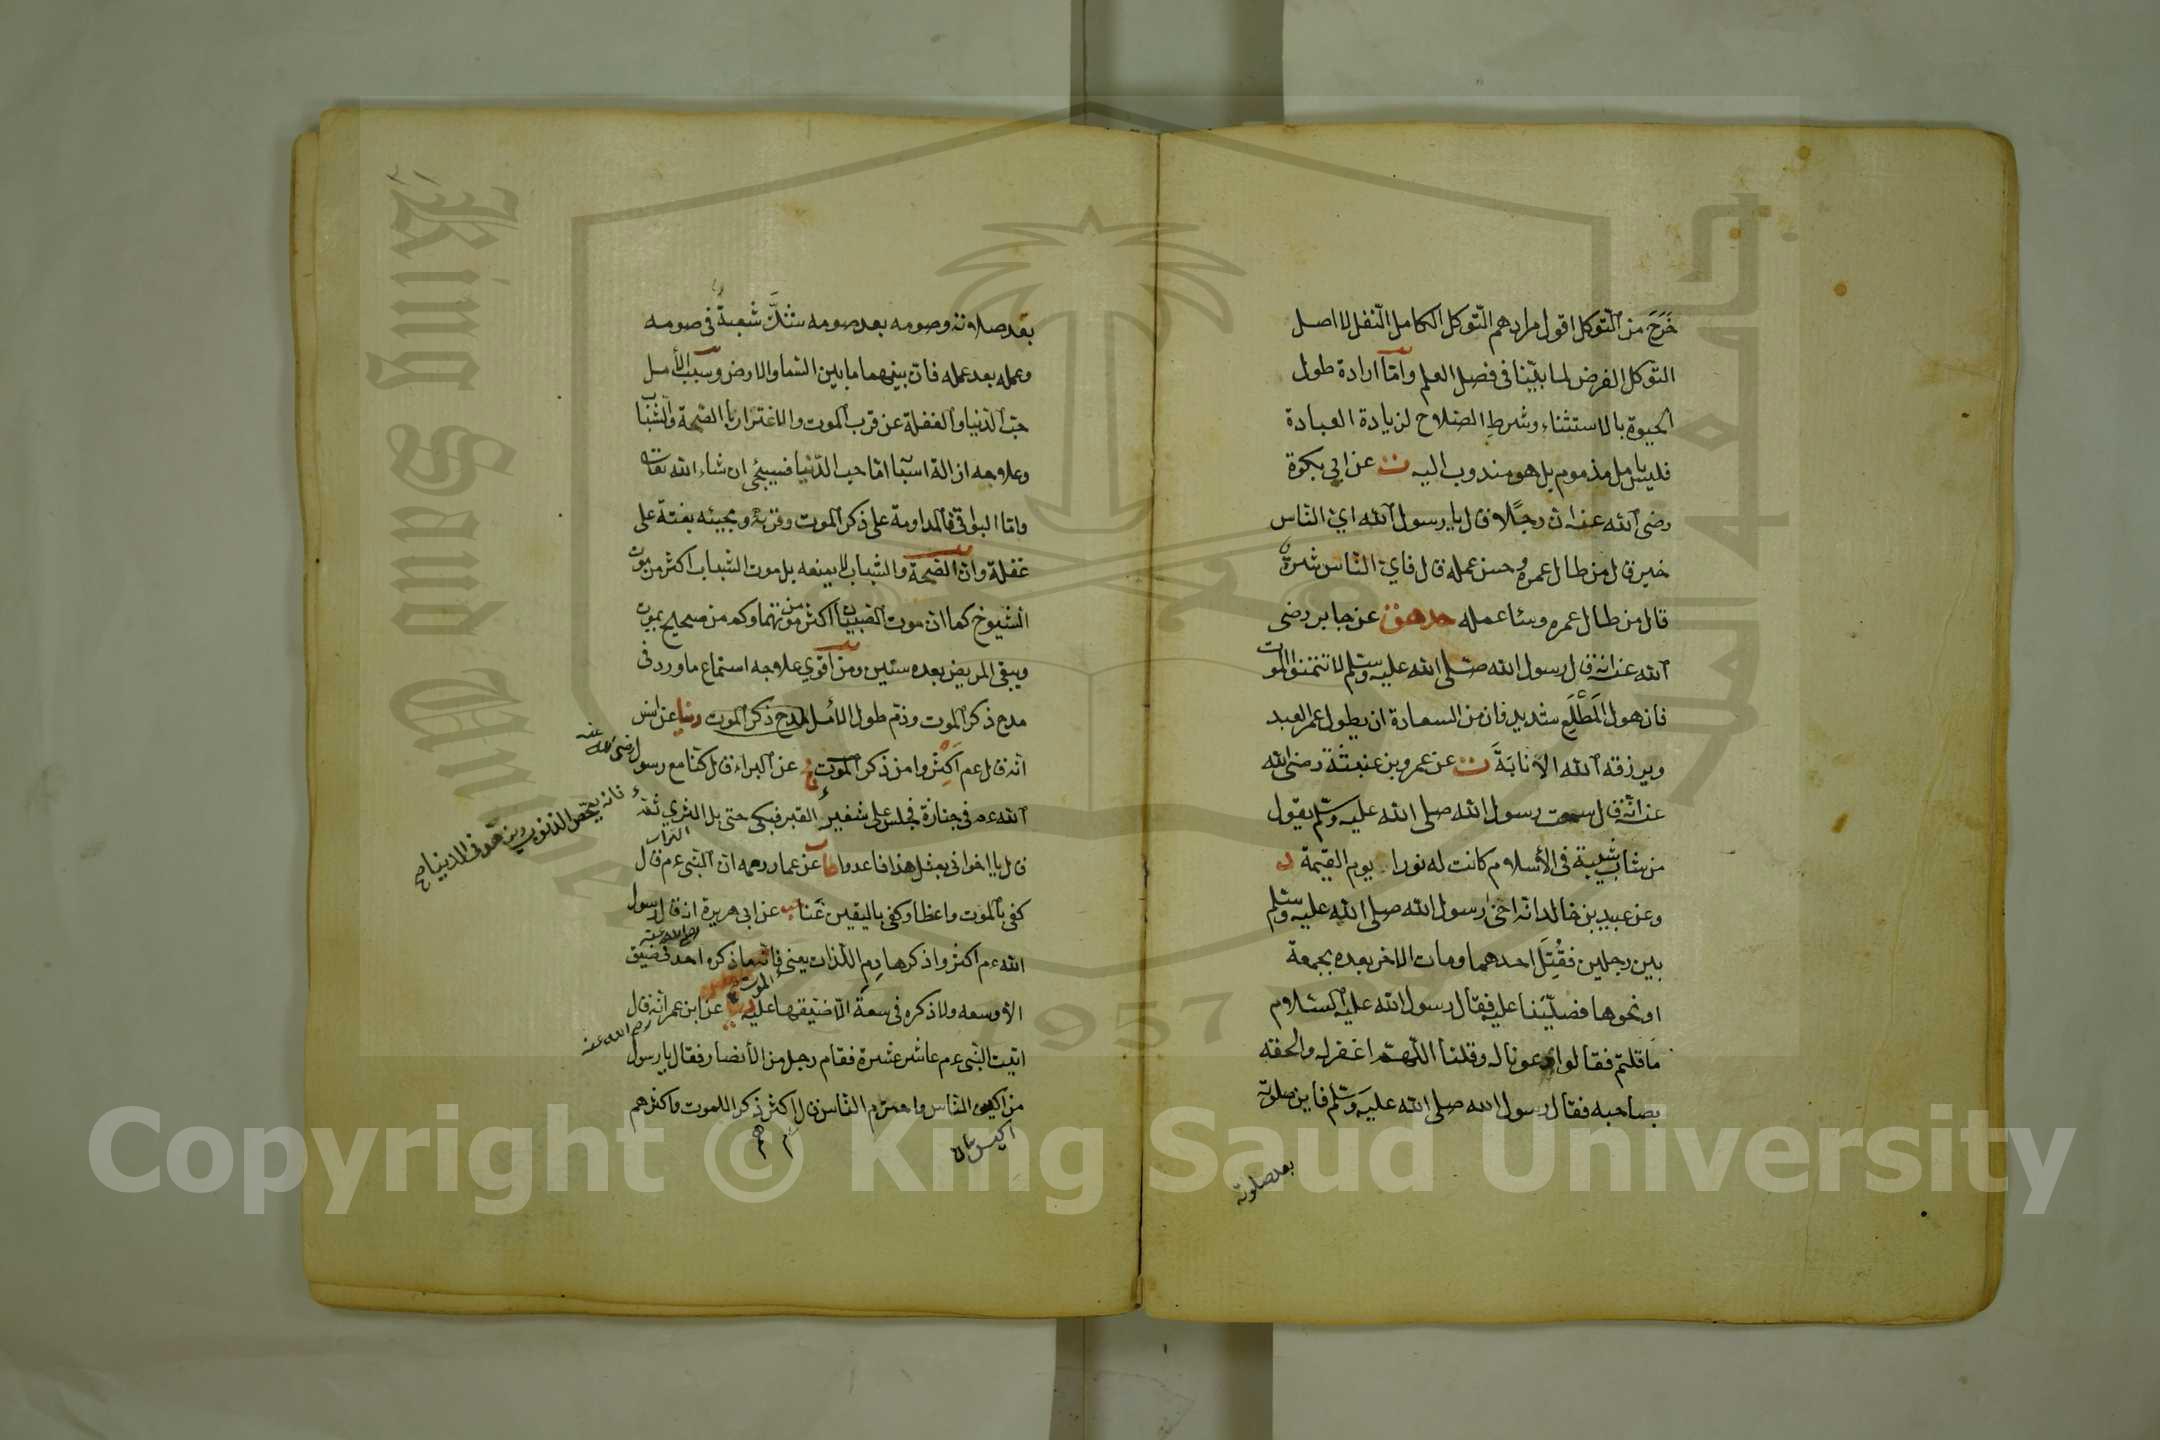 خرج من التوكل اقول مرادهم التوكل الكامل النفل لا اصل
التوكل الفرض لما بينا في فصل العلم واما ارادة طول
الحيوة بالاستثناء وشرط الصلاح لزيادة العبادة
فليس بامل مذموم بل هو مندوب اليه ت عن ابي بكرة
رضي الله عنه ان رجلا قال يا رسول الله اي الناس
خير قال من طال عمره وحسن عمله قال فاي الناس شر
قال من طال عمره وساء عمله حد هق عن جابر رضي
الله عنه انه قال رسول الله صلى الله عليه وسلم لا تتمنوا الموت
فان هول المطلع شديد فان من السعادة ان يطول عمر العبد
ويرزقه الله الانابة ت عن عمرو بن عنبثة رضي الله
عنه انه قال سمعت رسول الله صلى الله عليه وسلم يقول
من شاب شيبة في الأسلام كانت له نورا يوم القيمة د
وعن عبيد بن خالد انه اخى رسول الله صلى الله عليه وسلم
بين رجلين فقتل احدهما ومات الاخر بعده بجمعة
او نحوها فصلينا عليه فقال رسول الله عليه السلام
ما قلتم فقالوا دعونا له وقلنا اللهم اغفر له والحقه
بصاحبه فقال رسول الله صلى الله عليه وسلم فاين صلوته
بعد صلوته
بعد صلاوته وصومه بعد صومه شك شعبة في صومه
وعمله بعد عمله فان بينهما ما بين السما والارض وسبب الأمل
حب الدنيا والغفلة عن قرب الموت والاغترار بالصحة والشباب
وعلاجه ازالة اسبابها اما حب الدنيا فسيجئ ان شاء الله تعالى
واما البواقي فالمداومة على ذكر الموت وقربه ومجيئه بغتة على
غفلة وان الصحة والشباب لا يمنعه بل موت الشباب اكثر من موت
الشيوخ كما ان موت الصبيان اكثر من موتهما وكم من صحيح يموت
ويبقى المريض بعده سنين ومن اقوي علاجه استماع ما ورد في
مدح ذكر الموت وذم طول الأمل مدح ذكر الموت دنيا عن انس
رضي الله عنه
انه قال عم اكثروا من ذكر الموت عن البراء قال كنا مع رسول
فانه يمحص الذنوب ويزهد في الدنيا صح
الله عم في جنازة فجلس على شفير القبر فبكى حتى بل الثري ثم
التراب
قال يا اخواني بمثل هذا فاعدوا طب عن عمار رحمه ان النبي عم قال
كفى بالموت واعظا وكفى باليقين غنا حب عن ابي هريرة انه قال رسول
رضي الله عنه
الله عم اكثروا ذكر هادم اللذات يعني الموت فانه ما ذكره احد في ضيق
الا وسعه ولا ذكره في سعة الا ضيقها عليه دنيا عن ابن عمر انه قال
رضي الله عنه
اتيت النبي عم عاشر عشرة فقام رجل من الأنصار فقال يا رسول
من اكيس الناس واحزم الناس قال اكثر ذكرا للموت واكثرهم
اكيس
هم